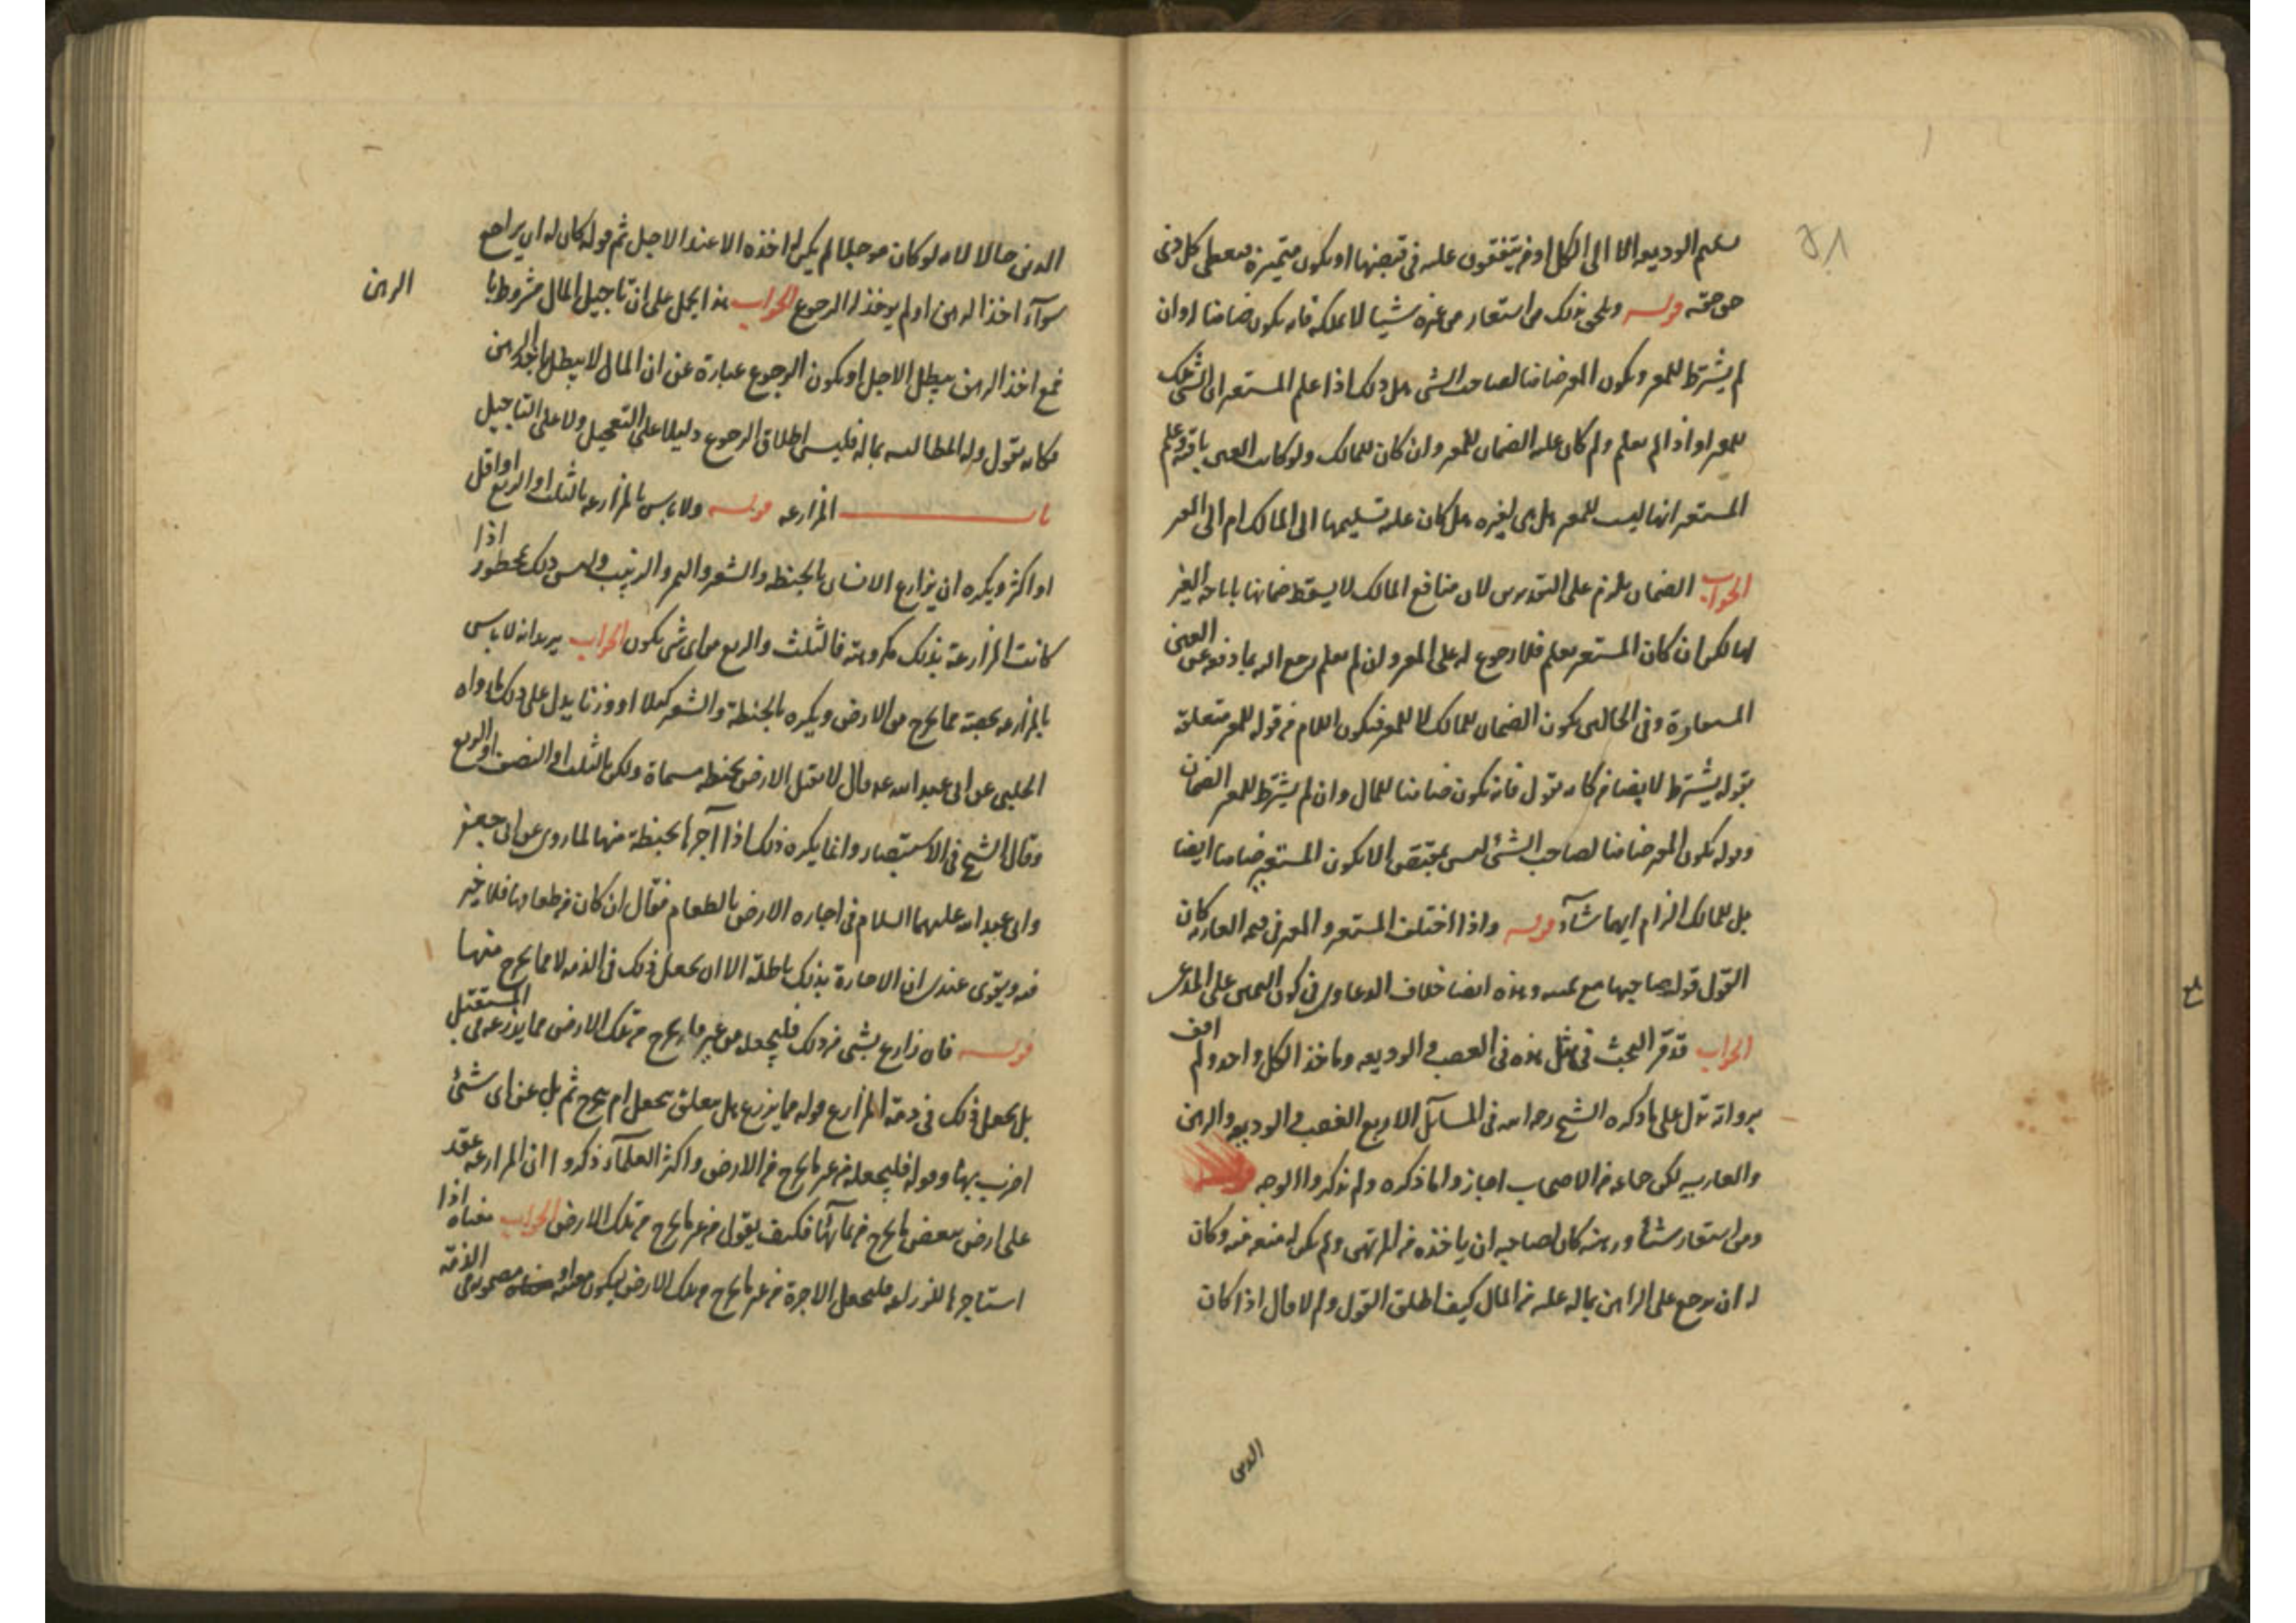 تسليم الوديعة الا الى الكل او من يتفقون عليه في قبضها او يكون متميزة فيعطى كل ذي
حق حقه قوله ويلحق بذلك من استعار من غيره شيئا لا يملكه فانه يكون ضامنا له وان
لم يشترط للمعير ويكون المعير ضامنا لصاحب الشي هل ذلك اذا علم المستعير ان الشي ملك
للمعير او اذا لم يعلم ولم كان عليه الضمان للمعير وان كان للمالك ولو كانت العين باقية وعلم
المستعير انها ليست للمعير بل هي لغيره هل كان عليه تسليمها الى المالك ام الى المعير
الجواب الضمان يلزم على التقديرين لان منافع المالك لا يسقط ضمانها باباحة الغير
لها لكن ان كان المستعير يعلم فلا رجوع له على المعير وان لم يعلم رجع اليه بما دفع عن العين
المستعارة وفي الحالين يكون الضمان للمالك لا للمعير فيكون اللام في قوله للمعير متعلقة
بقوله يشترط لا بضامن كانه يقول فانه يكون ضامنا للمال وان لم يشترط للمعير الضمان
وقوله يكون المعير ضامنا لصاحب الشئ ليس بمقتض الا يكون المستعير ضامنا ايضا
بل للمالك الزام ايهما شاء قوله واذا اختلف المستعير والمعير في قيمة العارية كان
القول قول صاحبها مع يمينه وهذه ايضا خلاف الدعاوى في كون اليمين على المدعى
الجواب قد مر البحث في مثل هذه في الغصب والوديعة وماخذ الكل واحد ولم اقف
برواية تدل على ما ذكره الشيخ رحمه الله في المسائل الاربع الغصب والوديعة والرهن
والعارية لكن جماعة من الاصحاب اجازوا ما ذكره ولم يذكروا الوجه قوله
ومن استعار شيئا ورهنه كان لصاحبه ان ياخذه من المرتهن ولم يكن له منعه منه وكان
له ان يرجع على الراهن بماله عليه من المال كيف اطلق القول ولم لا قال اذا كان
الدين
الدين حالا لانه لو كان موجلا لم يكن له اخذه الا عند الاجل ثم قوله كان له ان يراجع
سواء اخذ الرهن او لم يوخذ له الرجوع الجواب هذا يحمل على ان تاجيل المال مشروط با
الرهن
فمع اخذ الرهن يبطل الاجل او يكون الرجوع عبارة عن ان المال لا يبطل باخذ الرهن
فكانه يقول وله المطالبة بماله فليس اطلاق الرجوع دليلا على التعجيل ولا على التاجيل
باب المزارعة قوله ولا باس بالمزارعة بالثلث او الربع او اقل
او اكثر ويكره ان يزارع الانسان بالحنطة والشعير والتمر والزبيب وليس ذلك بمحظور اذا
كانت المزارعة بذلك مكروهة فالثلث والربع من اي شي يكون الجواب يريد انه لا باس
بالمزارعة بحصة مما يخرج من الارض ويكره بالحنطة والشعير كيلا او وزنا يدل على ذلك ما رواه
الحلبي عن ابي عبد الله عه قال لا تقبل الارض بحنطة مسماة ولكن بالثلث او النصف او الربع
وقال الشيخ في الاستبصار وانما يكره ذلك اذا آجرها بحنطة منها لما روى عن ابي جعفر
وابي عبد الله عليهما السلام في اجارة الارض بالطعام فقال ان كان من طعامها فلا خير
فيه ويقوى عندي ان الاجارة بذلك باطلة الا ان يجعل ذلك في الذمة لا مما يخرج منها
قوله فان زارع بشي من ذلك فليجعله من غير ما يخرج من تلك الارض مما يزرعه في المستقبل
بل يجعل ذلك في ذمة المزارع قوله مما يزرع هل يتعلق بيجعل ام بيخرج ثم بل عن اي شئ
اضرب بها وقوله فليجعله من غير ما يخرج من الارض واكثر العلماء ذكروا ان المزارعة عقد
على ارض ببعض ما يخرج من نمائها فكيف يقول من غير ما يخرج من تلك الارض الجواب معناه اذا
استاجرها للزراعة فليجعل الاجرة من غير ما يخرج من تلك الارض ليكون مضمونة في الذمة